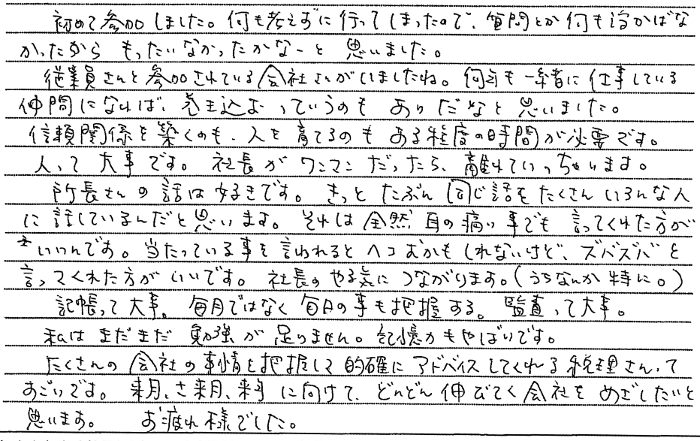 初めて参加しました。何も考えずに行ってしまったので、質問とか何も浮かばな
かったからもったいなかったかなーと思いました。
従業員さんと参加されている会社さんがいましたね。何年も一緒に仕事している
仲間になれば、巻き込むっていうのもありだなと思いました。
信頼関係を築くのも、人を育てるのもある程度の時間が必要です。
人って大事です。社長がワンマンだったら、離れていっちゃいます。
所長さんの話は好きです。きっとたぶん同じ話をたくさんいろんな人
に話しているんだと思います。それは全然耳の痛い事でも言ってくれた方が
いいんです。当たっている事を言われるとヘコむかもしれないけど、ズバズバと
言ってくれた方がいいです。社長のやる気につながります。(うちなんか特に。)
記帳って大事。毎月ではなく毎日の事も把握する。監査って大事。
私はまだまだ勉強が足りません。記憶力もやばいです。
たくさんの会社の事情を把握して的確にアドバイスしてくれる税理さんって
すごいです。来月、さ来月、来年に向けて、どんどん伸びてく会社をめざしたいと
思います。お疲れ様でした。